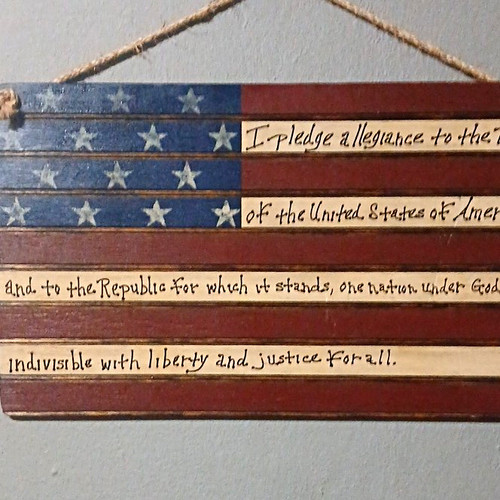 I pledge allegiance to the
of the United States of Amer
and to the Republic for which it stands, one nation under God
indivisible with liberty and justice for all.